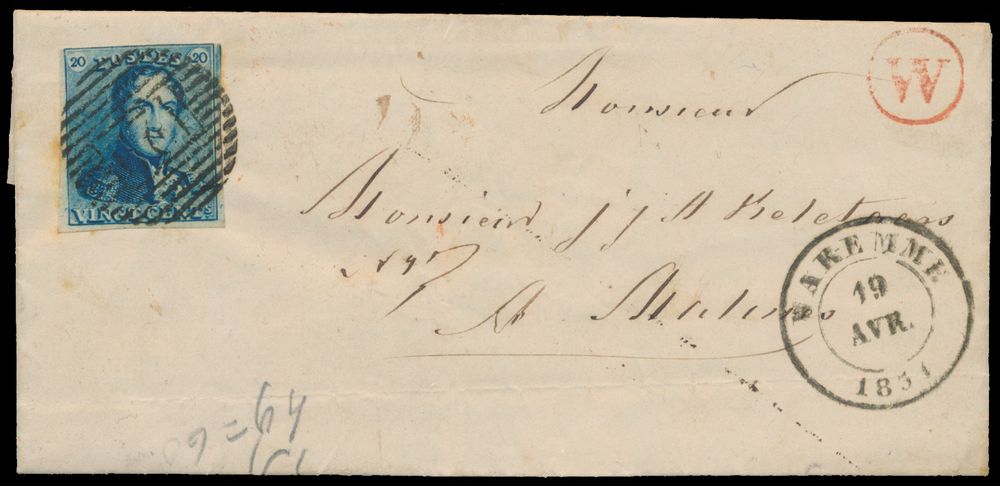 20 POSTES 20
VINGT CENTS
W
Monsieur
Monsieur j j A Keletaers
A Malines
WAREMME
19
AVR.
1851
= 64